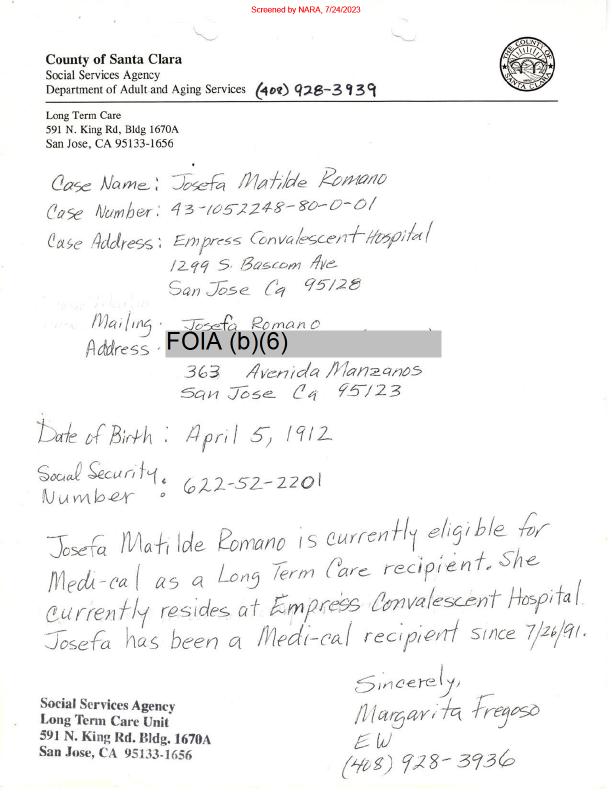 Screened by NARA, 7/24/2023
County of Santa Clara
Social Services Agency
Department of Adult and Aging Services (408) 928-3939
THE COUNTY OF SANTA CLARA
Long Term Care
591 N. King Rd, Bldg 1670A
San Jose, CA 95133-1656
Case Name: Josefa Matilde Romano
Case Number: 43-1052248-80-0-01
Case Address: Empress Convalescent Hospital
1299 S. Bascom Ave
San Jose Ca 95128
Mailing Josefa Romano
Address: FOIA (b)(6)
363 Avenida Manzanos
San Jose Ca 95123
Date of Birth: April 5, 1912
Social Security
Number : 622-52-2201
Josefa Matilde Romano is currently eligible for
Medi-cal as a Long Term Care recipient. She
currently resides at Empress Convalescent Hospital.
Josefa has been a Medi-cal recipient since 7/26/91.
Sincerely,
Margarita Fregoso
EW
(408) 928-3936
Social Services Agency
Long Term Care Unit
591 N. King Rd. Bldg. 1670A
San Jose, CA 95133-1656